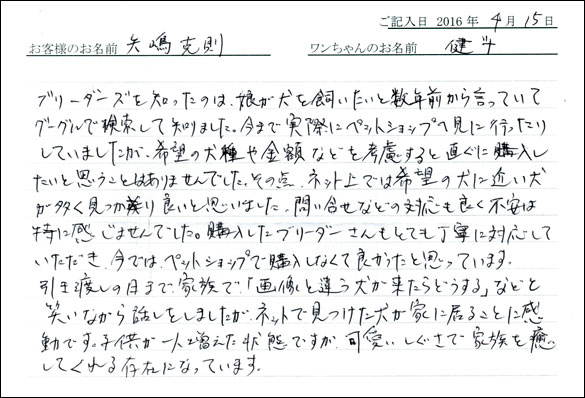 ご記入日 2016 年 4 月 15 日
お客様のお名前 矢嶋克則 ワンちゃんのお名前 健斗
ブリーダーズを知ったのは、娘が犬を飼いたいと数年前から言っていて
グーグルで検索して知りました。今まで実際にペットショップへ見に行ったり
していましたが、希望の犬種や金額などを考慮すると直ぐに購入し
たいと思うことはありませんでした。その点、ネット上では希望の犬に近い犬
が多く見つかり良いと思いました。問い合せなどの対応も良く不安は
特に感じませんでした。購入したブリーダーさんもとても丁寧に対応して
いただき、今では、ペットショップで購入しなくて良かったと思っています。
引き渡しの日まで、家族で、「画像と違う犬が来たらどうする」などと
笑いながら話しをしましたが、ネットで見つけた犬が家に居ることに感
動です。子供が一人増えた状態ですが、可愛いしぐさで家族を癒
してくれる存在になっています。